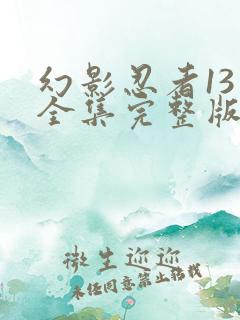 幻影忍者13
全集完整版
微生迎迎
未经同意禁止转载